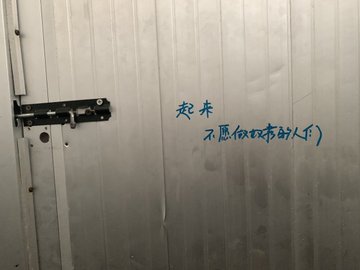 起来
不愿做奴隶的人们